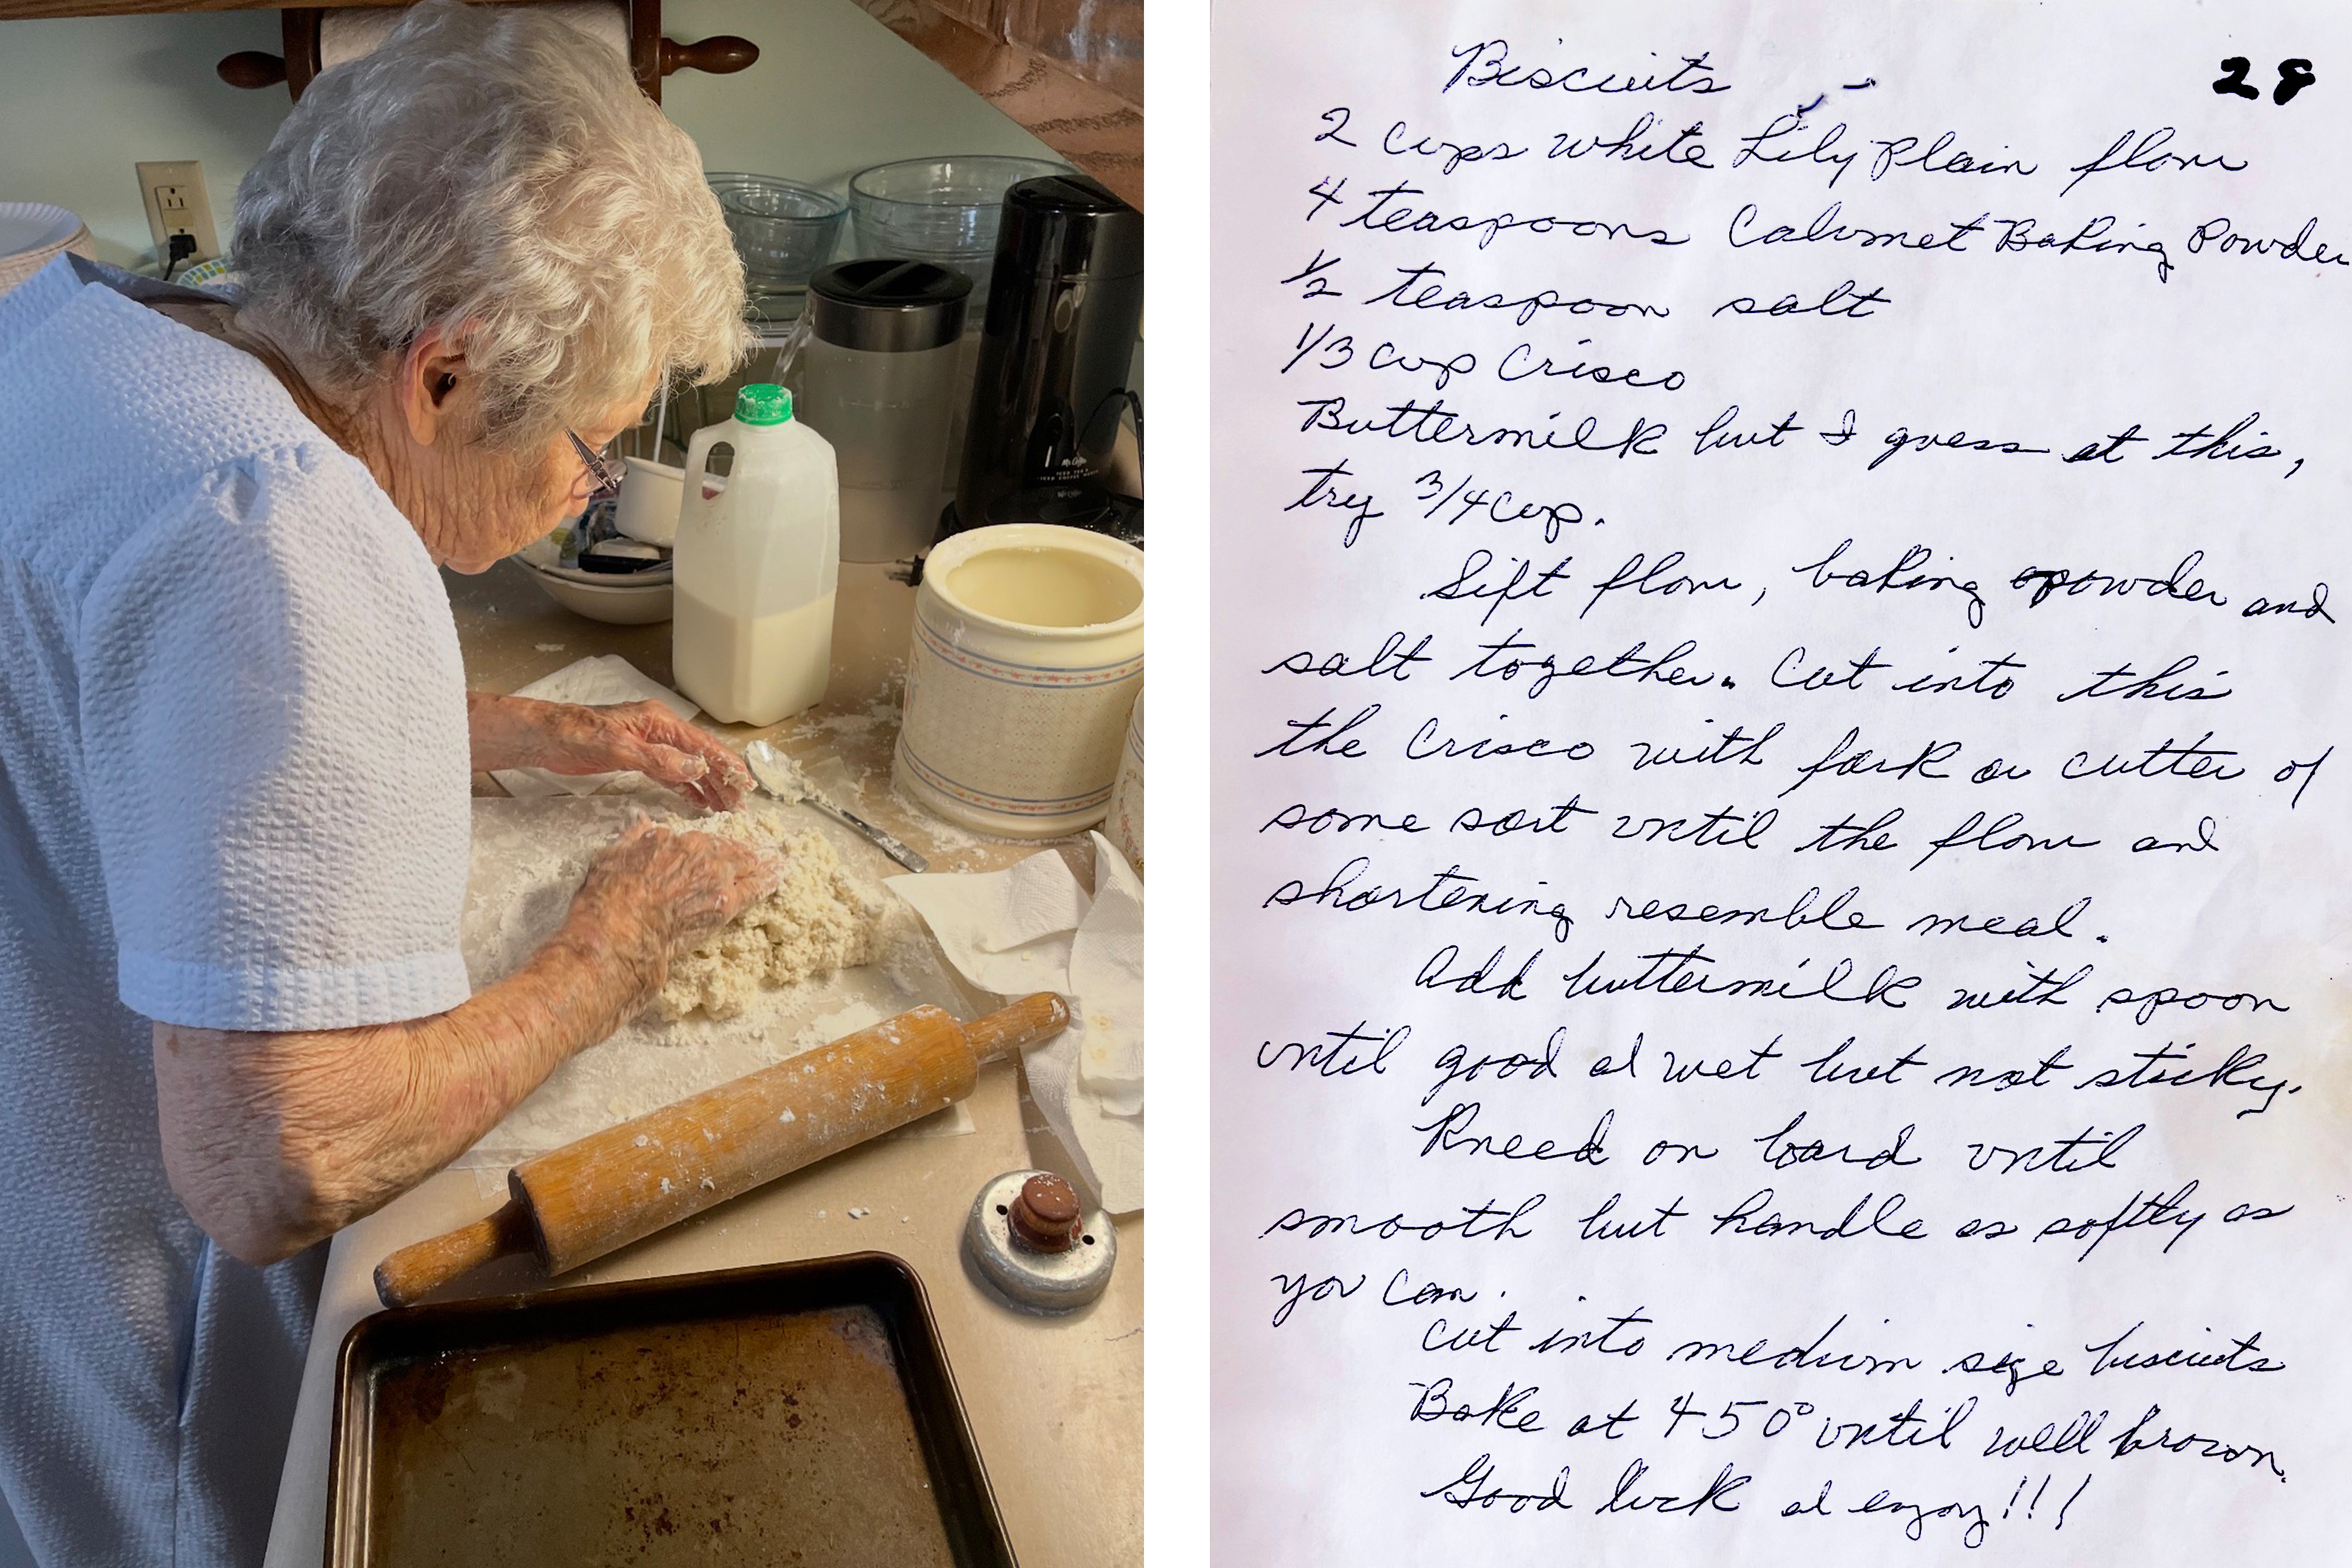 Mr. Coffee
Biscuits
28
2 cups white Lily Plain flour
4 teaspoons Calumet Baking Powder
1/2 teaspoon salt
1/3 cup Crisco
Buttermilk but I guess at this,
try 3/4 cup.
Sift flour, baking powder and
salt together. Cut into this
the Crisco with fork or cutter of
some sort until the flour and
shortening resemble meal.
Add buttermilk with spoon
until good and wet but not sticky.
Kneed on board until
smooth but handle as softly as
you can.
Cut into medium size biscuits
Bake at 450° until well brown.
Good luck and enjoy!!!